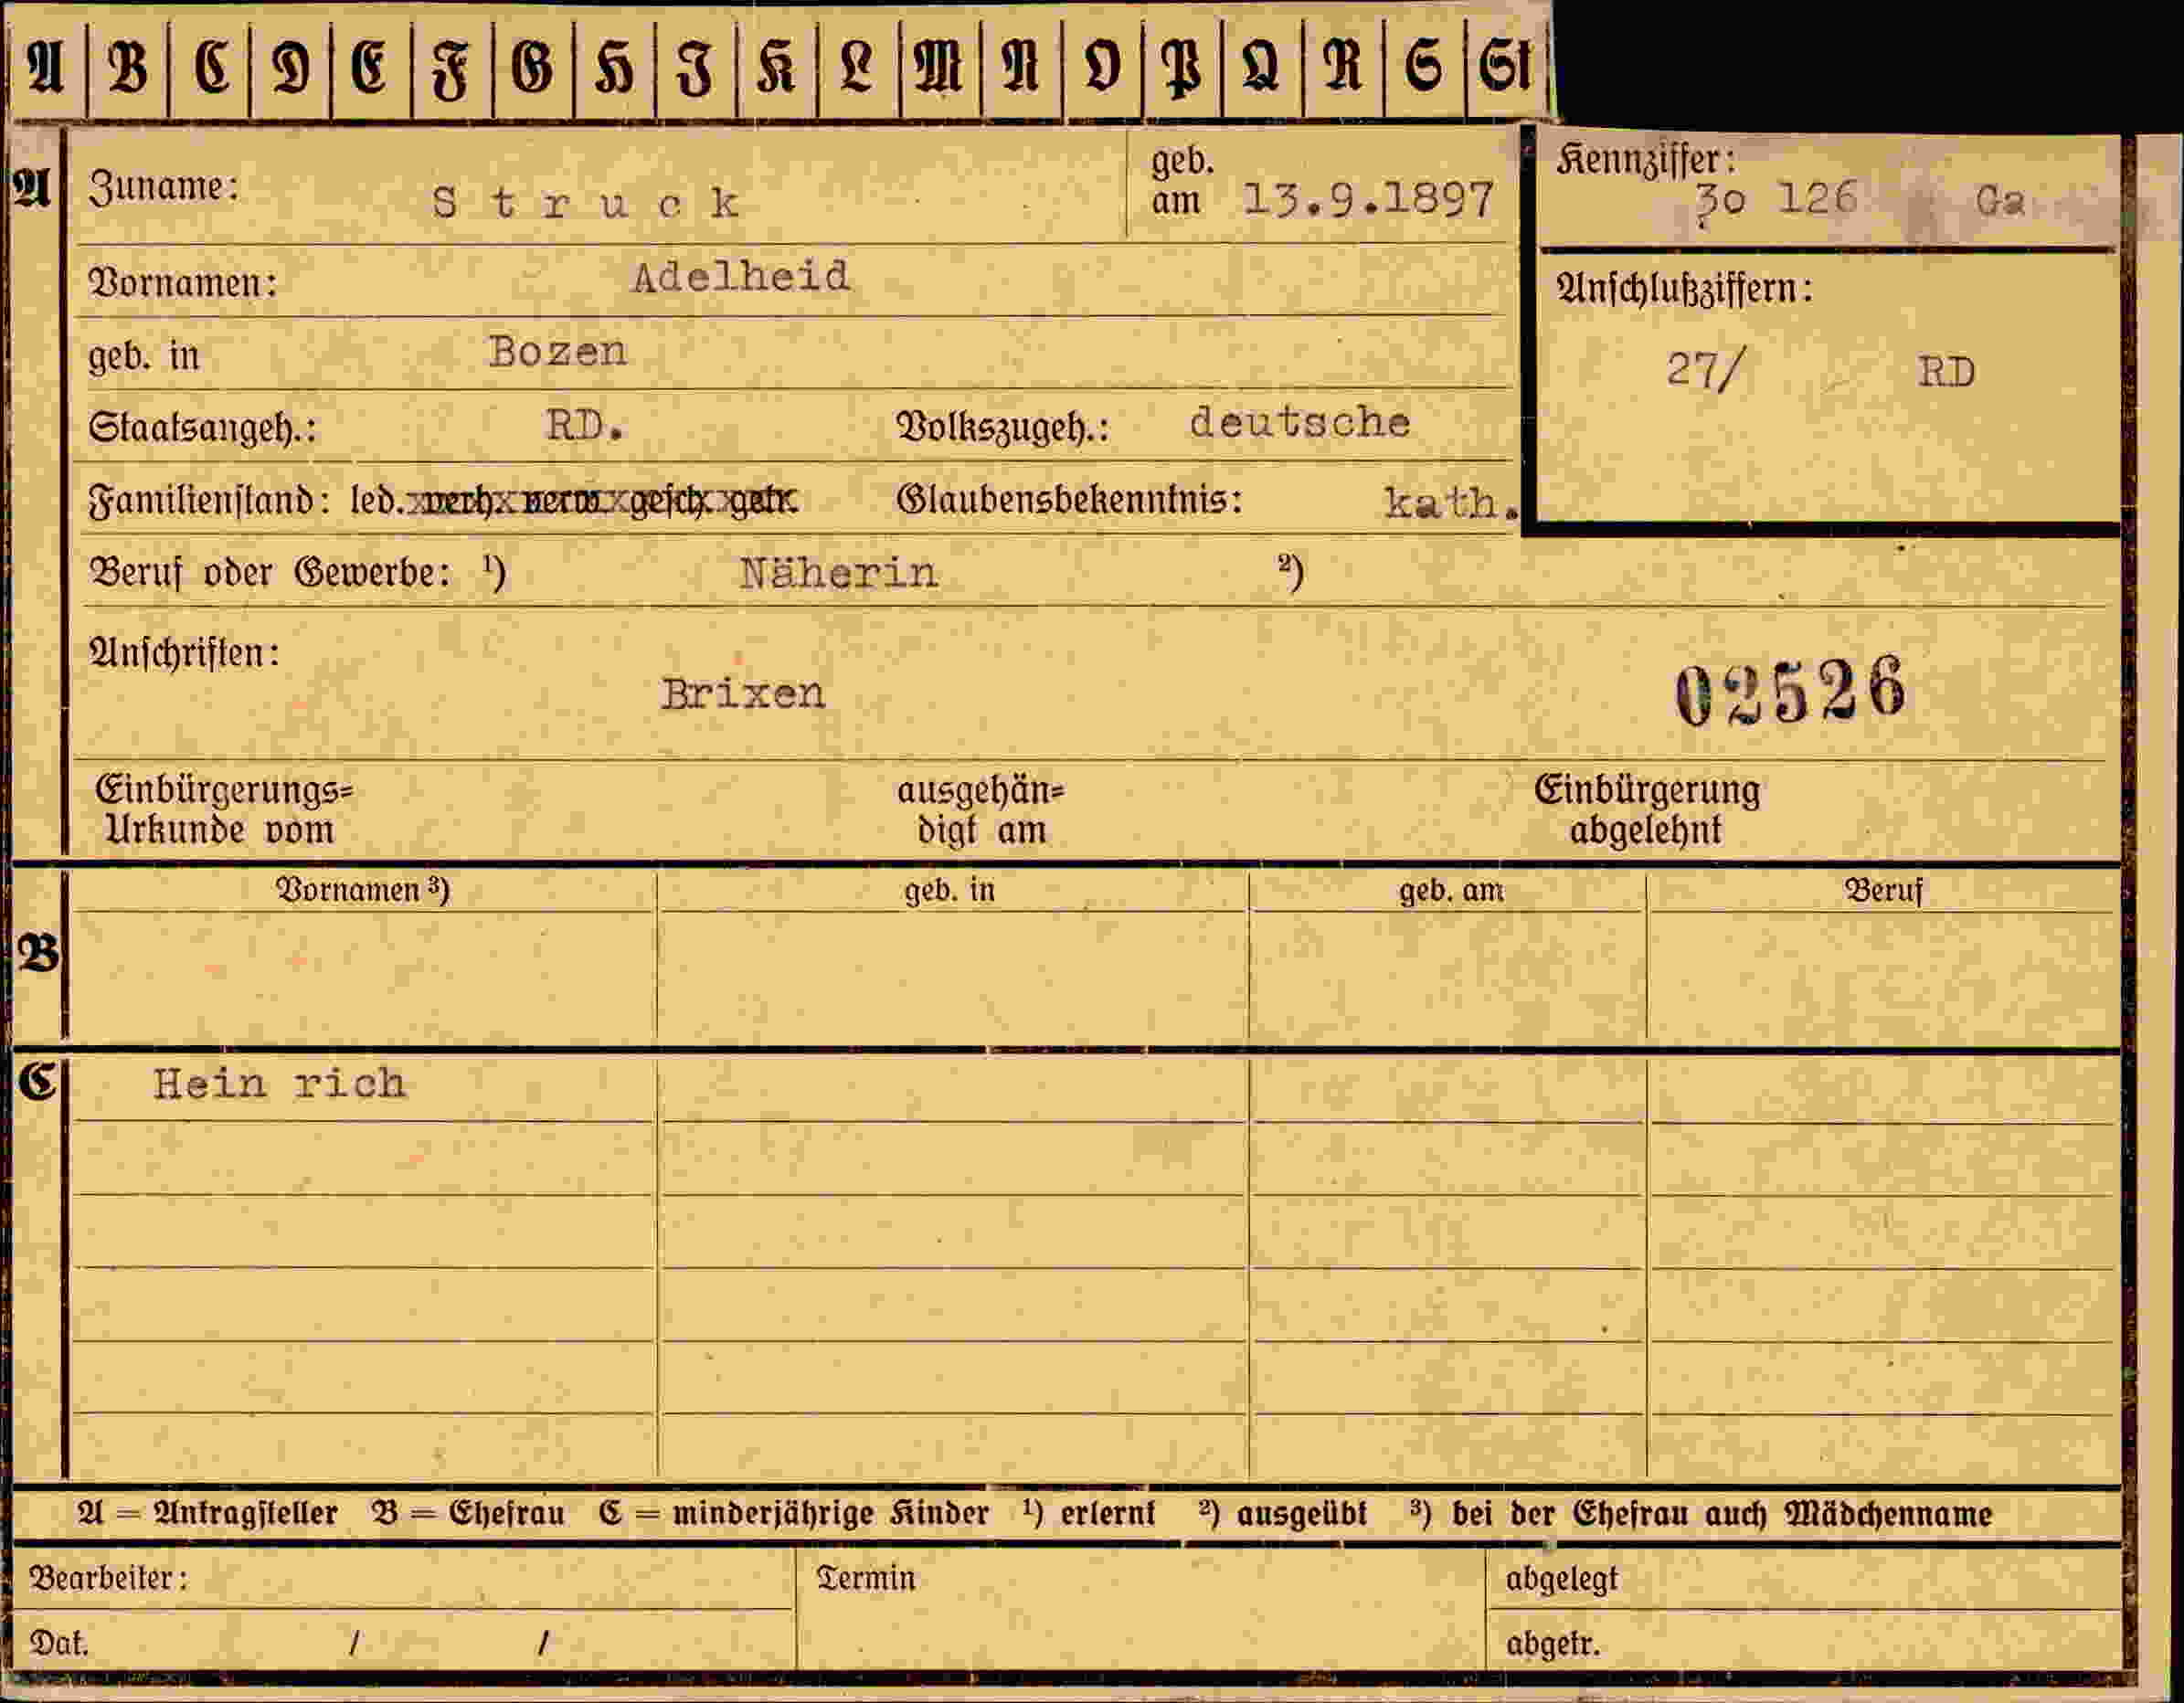 A B C D E F G H I K L M N O P Q R S St
A Zuname: Struck geb. am 13.9.1897
Kennziffer: 30 126 Ga
Vornamen: Adelheid
Anschlußziffern:
geb. in Bozen
27/ RD
Staatsangeh.: RD. Volkszugeh.: deutsche
Familienstand: led. verh. verw. gesch. getr. Glaubensbekenntnis: kath.
Beruf oder Gewerbe: ¹) Näherin ²)
Anschriften:
Brixen 02526
Einbürgerungs= ausgehän= Einbürgerung
Urkunde vom digt am abgelehnt
Vornamen ³) geb. in geb. am Beruf
B
C Hein rich
A = Antragsteller B = Ehefrau C = minderjährige Kinder ¹) erlernt ²) ausgeübt ³) bei der Ehefrau auch Mädchenname
Bearbeiter: Termin abgelegt
Dat. / / abgetr.